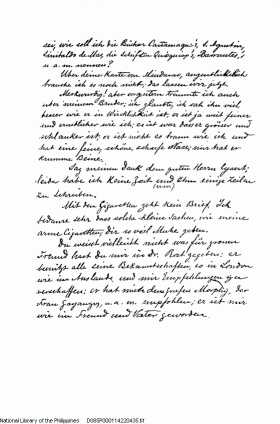 sei, wie soll ich die Bücher Cartamaque's, S. Agustin,
de Mas, die
u. a. m. nennen?
Über deine Karte von Mindanao, augenblicklich
brauche ich es noch nicht, das lassen wir jetzt.
Merkwürdig! aber vorgestern träumte ich auch
von meinem Bruder; ich glaubte, ich sah ihn viel
besser wie er in Wirklichkeit ist, er ist ja viel feiner
und anständiger wie ich; es ist wahr dass er grösser und
schlanker ist; er ist nicht so braun wie ich und
hat eine feine, schöne, scharfe Nase; nur hat er
krumme Beine.
Sag meinen Dank dem guten Herrn
leider habe ich keine Zeit und ihm einige Zeilen
zu schreiben.
Mit den Cigaretten geht kein Brief. Ich
bedaure sehr dass solche kleine Sachen, wie meine
arme Cigaretten, dir so viel Mühe geben.
Du weisst vielleicht nicht was für grossen
Freund hast du mir in Dr. Rost gegeben; er
benützt alle seine Bekanntschaften, so in London
wie im Auslande um mir Empfehlungen
verschaffen; er hat mich dem grafen Morphy, der
Frau Gayangos, u. a. m. empfohlen; er ist mir
wie ein Freund und Vater geworden.
National Library of the Philippines